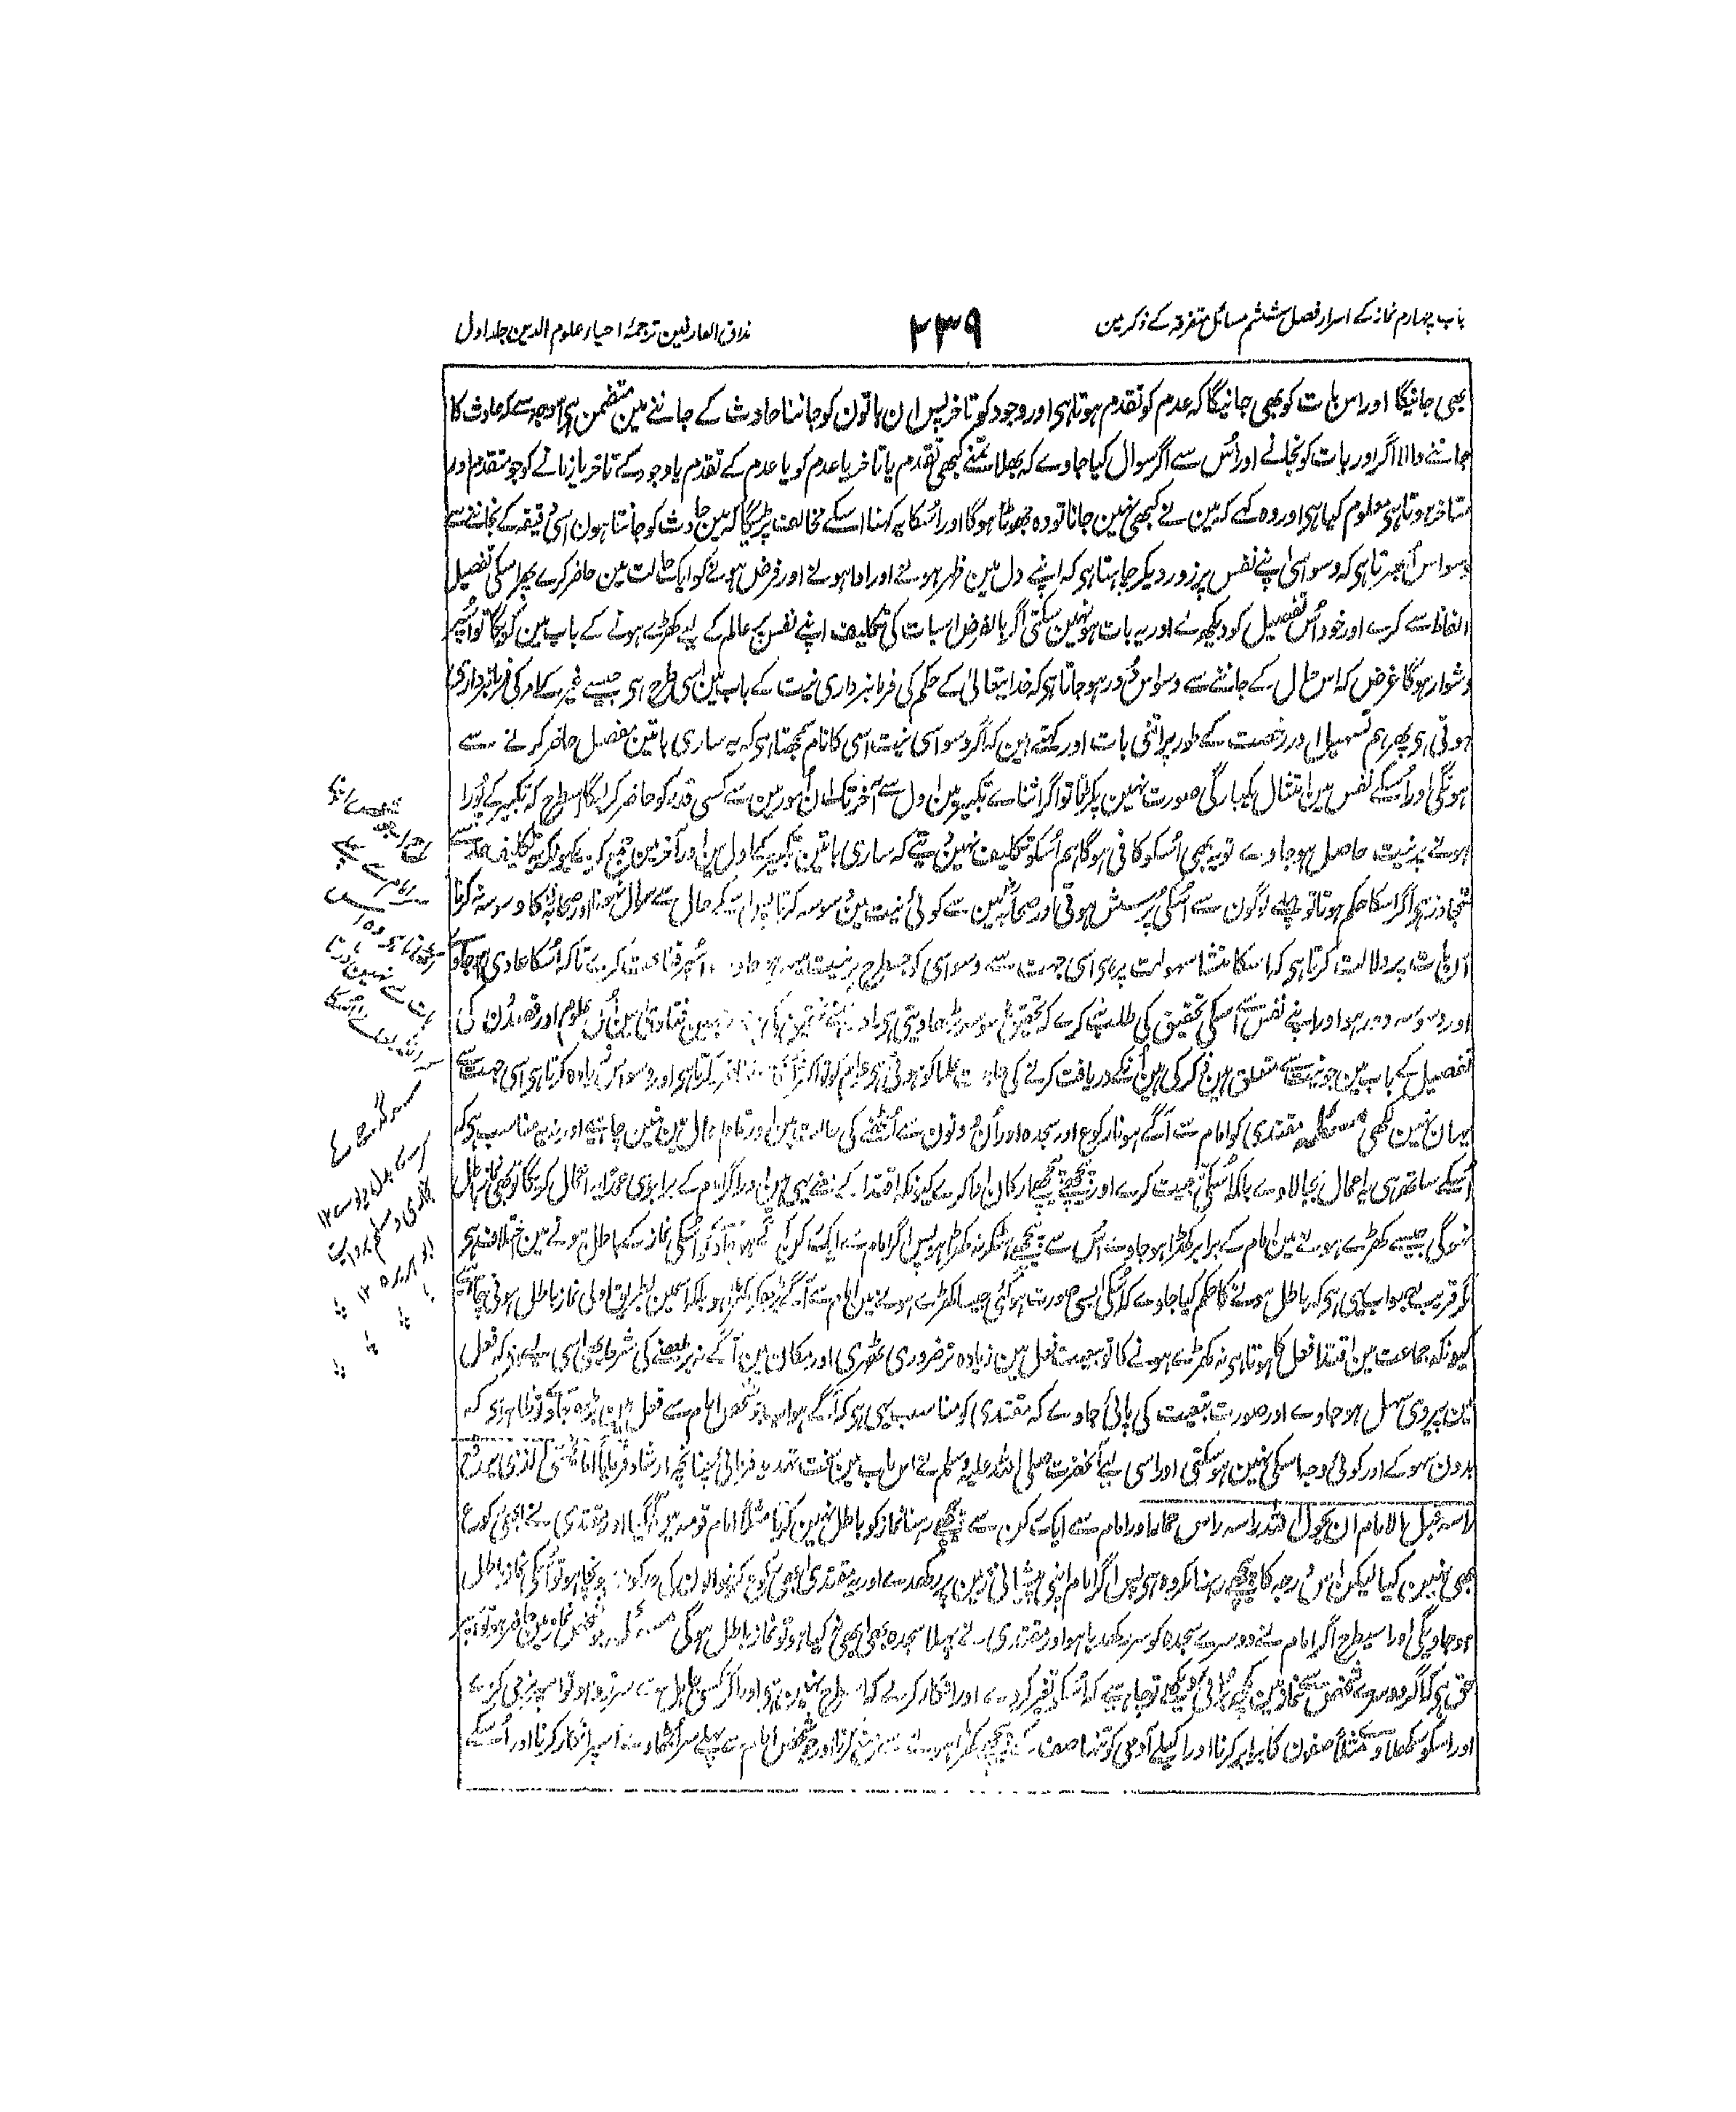 باب چہارم نماز کے اسرار فصل ششم مسائل متفرقہ کے ذکر مین
۲۳۹
مذاق العارفین ترجمۂ احیاء علوم الدین جلد اول
بھی جانیگا اور اس بات کو بھی جانیگا کہ عدم کو تقدم ہوتا ہی اور وجود کو تاخر پس ان باتون کو جاننا حادث کے جاننے مین متضمن ہی اسوجہ سے کہ حادث کا
جاننے والا اگر اور بات کو نجانے اور اُس سے اگر سوال کیا جاوے کہ بھلا تمنے کبھی تقدم یا تاخر یا عدم کو یا عدم کے تقدم یا وجود کے تاخر یا زمانے کو جو متقدم اور
متاخر ہوتا ہی معلوم کیا ہی اور وہ کہے کہ مین نے کبھی نہین جانا تو وہ جھوٹا ہوگا اور اُسکا یہ کہنا اسکے مخالف پڑیگا کہ مین حادث کو جانتا ہون اسی دقیقہ کے نجاننے سے
وسواس اُبھرتا ہی کہ وسواسی اپنے نفس پر زور دیکر چاہتا ہی کہ اپنے دل مین ظہر ہونے اور ادا ہونے اور فرض ہونے کو ایک حالت مین حاضر کرے پھر اسکی تفصیل
الفاظ سے کرے اور خود اُس تفصیل کو دیکھے اور یہ بات ہو نہین سکتی اگر بالفرض اسبات کی تکلیف اپنے نفس پر عالم کے لیے کھڑے ہونے کے باب مین کریگا تو اُسپر
دشوار ہوگا غرض کہ اس حال کے جاننے سے وسواس دور ہو جاتا ہی کہ خدا یتعالیٰ کے حکم کی فرمانبرداری نیت کے باب مین اسی طرح ہی جیسے غیر کے امر کی فرمانبرداری
ہوتی ہی پھر ہم تسہیل اور رخصت کے طور پر اتنی بات اور کہتے ہین کہ اگر وسواسی نیت اسی کا نام سمجھتا ہی کہ یہ ساری باتین مفصل حاضر کرنے سے
ہونگی اور اُسکے نفس مین امتثال یکبارگی صورت نہین پکڑتا تو اگر اثنائے تکبیر مین اول سے آخر تک ان اُمور مین سے کسی قدر کو حاضر کرلیگا اسطرح کہ تکبیر کے پورا
ہونے پر نیت حاصل ہو جاوے تو یہ بھی اُسکو کافی ہوگا ہم اُسکو تکلیف نہین دیتے کہ ساری باتین تکبیر کے اول مین اور آخر مین جمع کرے کیونکہ یہ تکلیف حد سے
متجاوز ہی اگر اسکا حکم ہوتا تو پہلے لوگون سے اُسکی پرسش ہوتی اور صحابہ مین سے کوئی نیت مین وسوسہ کرتا
اس بات پر دلالت کرتا ہی کہ اسکا منشا سہولت پر ہی اسی جہت سے وسواسی کو جسطرح پر نیت میسر ہو جاوے اُسپر قناعت کرے تاکہ اُسکا عادی ہو جاوے
اور وسوسہ دور ہو اور اپنے نفس سے اُسکی تحقیق کی طلب نہ کرے کہ تحقیق وسوسہ بڑھا دیتی ہی اور ہمنے تحقیق کی علوم اور قصدون کی
تفصیل کے باب مین جو نیت سے متعلق ہین ذکر کی ہین اُنکے دریافت کرنے کی حاجت علما کو ہوتی ہی کرتا ہی اور وسواس زیادہ کرتا ہی اسی جہت سے
یہان نہین لکھی مسئلہ مقتدی کو امام سے آگے ہونا رکوع اور سجدہ اور اُن دونون سے اُٹھنے کی حالت مین اور تمام اعمال مین نہین چاہیے اور نہ یہ مناسب ہی کہ
اُسکے ساتھ ہی یہ اعمال بجا لاوے بلکہ اُسکی تبعیت کرے اور پیچھے پیچھے ارکان ادا کرے کیونکہ اقتدا کے معنے یہی ہین اور اگر امام کے برابر ہی عمداً یہ اعمال کریگا تو بھی نماز باطل
نہوگی جیسے کھڑے ہونے مین امام کے برابر کھڑا ہو جاوے اُس سے پیچھے ہٹکر نہ کھڑا ہو پس اگر امام سے ایک رکن آگے ہو جاوے تو اُسکی نماز کے باطل ہونے مین اختلاف ہی
مگر قریب بصواب یہی ہی کہ باطل ہونے کا حکم کیا جاوے کہ اُسکی ایسی صورت ہو گئی جیسا کھڑے ہونے مین امام سے آگے بڑھ کر کھڑا ہو بلکہ اسمین بطریق اولی نماز باطل ہونی چاہیے
کیونکہ جماعت مین اقتدا فعل کا ہوتا ہی نہ کھڑے ہونے کا تو تبعیت فعل مین زیادہ تر ضروری ٹھہری اور مکان مین آگے نہ بڑھنے کی شرط بھی اسی لیے ہی کہ فعل
مین پیروی سہل ہو جاوے اور صورت تبعیت کی پائی جاوے کہ مقتدی کو مناسب یہی ہی کہ آگے ہو اب جو شخص امام سے فعل مین بڑھ جاوے تو ظاہر ہی کہ
بدون سہو کے اور کوئی وجہ اسکی نہین ہو سکتی اور اسی لیے آنحضرت صلی اللہ علیہ وسلم نے اس باب مین سخت تہدید فرمائی چنانچہ ارشاد فرمایا اما یخشی الذی یرفع
راسہ قبل الامام ان یحول اللہ راسہ راس حمار اور امام سے ایک رکن سے پیچھے رہنا نماز کو باطل نہین کرتا مثلاً امام قومہ مین آگیا اور مقتدی نے ابھی رکوع
بھی نہین کیا لیکن اس درجہ کا پیچھے رہنا مکروہ ہی پس اگر امام اپنی پیشانی زمین پر رکھدے اور یہ مقتدی ابھی رکوع کرنیوالون کی حد کو نہ پہونچا ہو تو اُسکی نماز باطل
ہو جاویگی اور اسیطرح اگر امام نے دوسرے سجدہ کو سر رکھدیا ہو اور مقتدی نے پہلا سجدہ بھی ابھی نہ کیا ہو تو نماز باطل ہوگی مسئلہ جو شخص نماز مین حاضر ہو تو اُسپر
حق ہی کہ اگر دوسرے شخص سے نماز مین کچھ برائی دیکھے تو چاہیے کہ اُسکی تغیر کردے اور انکار کرے اور اگر کسی جاہل سے سرزد ہو تو اُسپر نرمی کرے
اور اسکو سکھلاوے مثلاً صفون کا برابر کرنا اور اکیلے آدمی کو تنہا صف کے پیچھے کھڑا ہونے سے منع کرنا اور جو شخص امام سے پہلے سر اُٹھاوے اُسپر انکار کرنا اور اُسکے